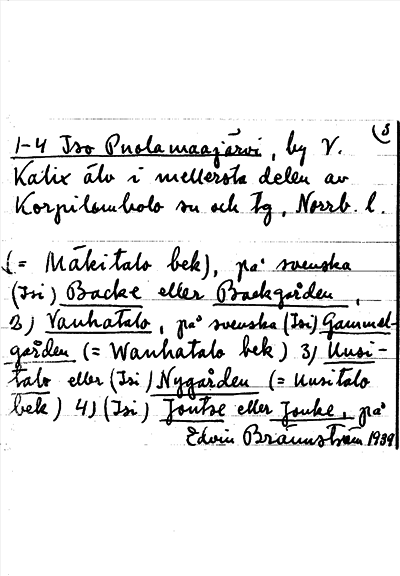 (3
1-4 Iso Puolamaajärvi, by V.
Kalix älv i mellersta delen av
Korpilombolo sn och tg, Norrb. l.
(= Mäkitalo bek), på svenska
(Isi) Backe eller Backgården,
2) Vanhatalo, på svenska (Isi) Gammel-
gården (= Wanhatalo bek) 3) Uusi-
talo eller (Isi) Nygården (= Uusitalo
bek) 4) (Isi) Jontse eller Jonke, på
Edvin Brännström 1939